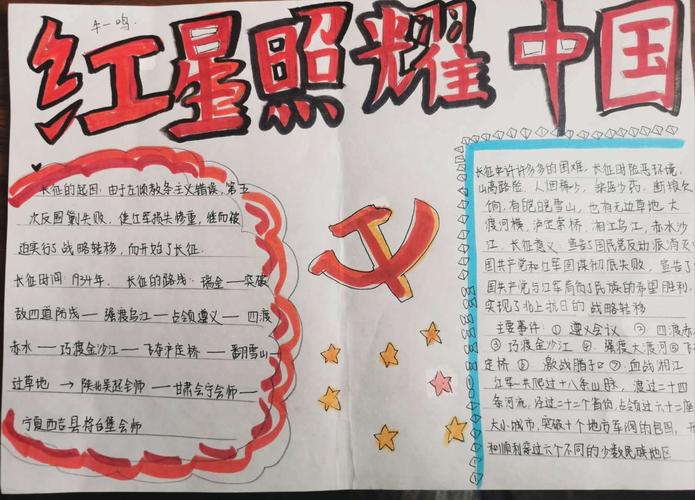 牛一鸣
红星照耀中国
长征的起因:由于左倾教条主义错误,第五
次反围剿失败,使红军损失惨重,继而被
迫实行了战略转移,而开始了长征.
长征时间:1934年. 长征的路线:瑞金—突破
敌四道防线—强渡乌江—占领遵义—四渡
赤水—巧渡金沙江—飞夺泸定桥—翻雪山—
过草地→陕北吴起会师—甘肃会宁会师—
宁夏西吉县将台堡会师
长征中许许多多的困难,长征时险恶环境,
山高路险,人烟稀少,缺医少药,
有皑皑雪山,也有无过草地 大
渡河横,泸定索桥,湘江乌江,赤水沙
江.长征意义:宣告了国民党反动派消灭
国共产党和红军图谋彻底失败,宣告了
国共产党与红军肩负了民族的希望胜利
实现了北上抗日的战略转移
主要事件:①遵义会议 ②四渡赤
③巧渡金沙江 ④强渡大渡河⑤飞
定桥⑥激战腊子口⑦血战湘江
红军一共爬过十八条山脉,渡过二十四
条河流,经过二十二个省份,占领过六十二座
大小城市,突破十个地方军阀的包围,
和顺利穿过六个不同的少数民族地区